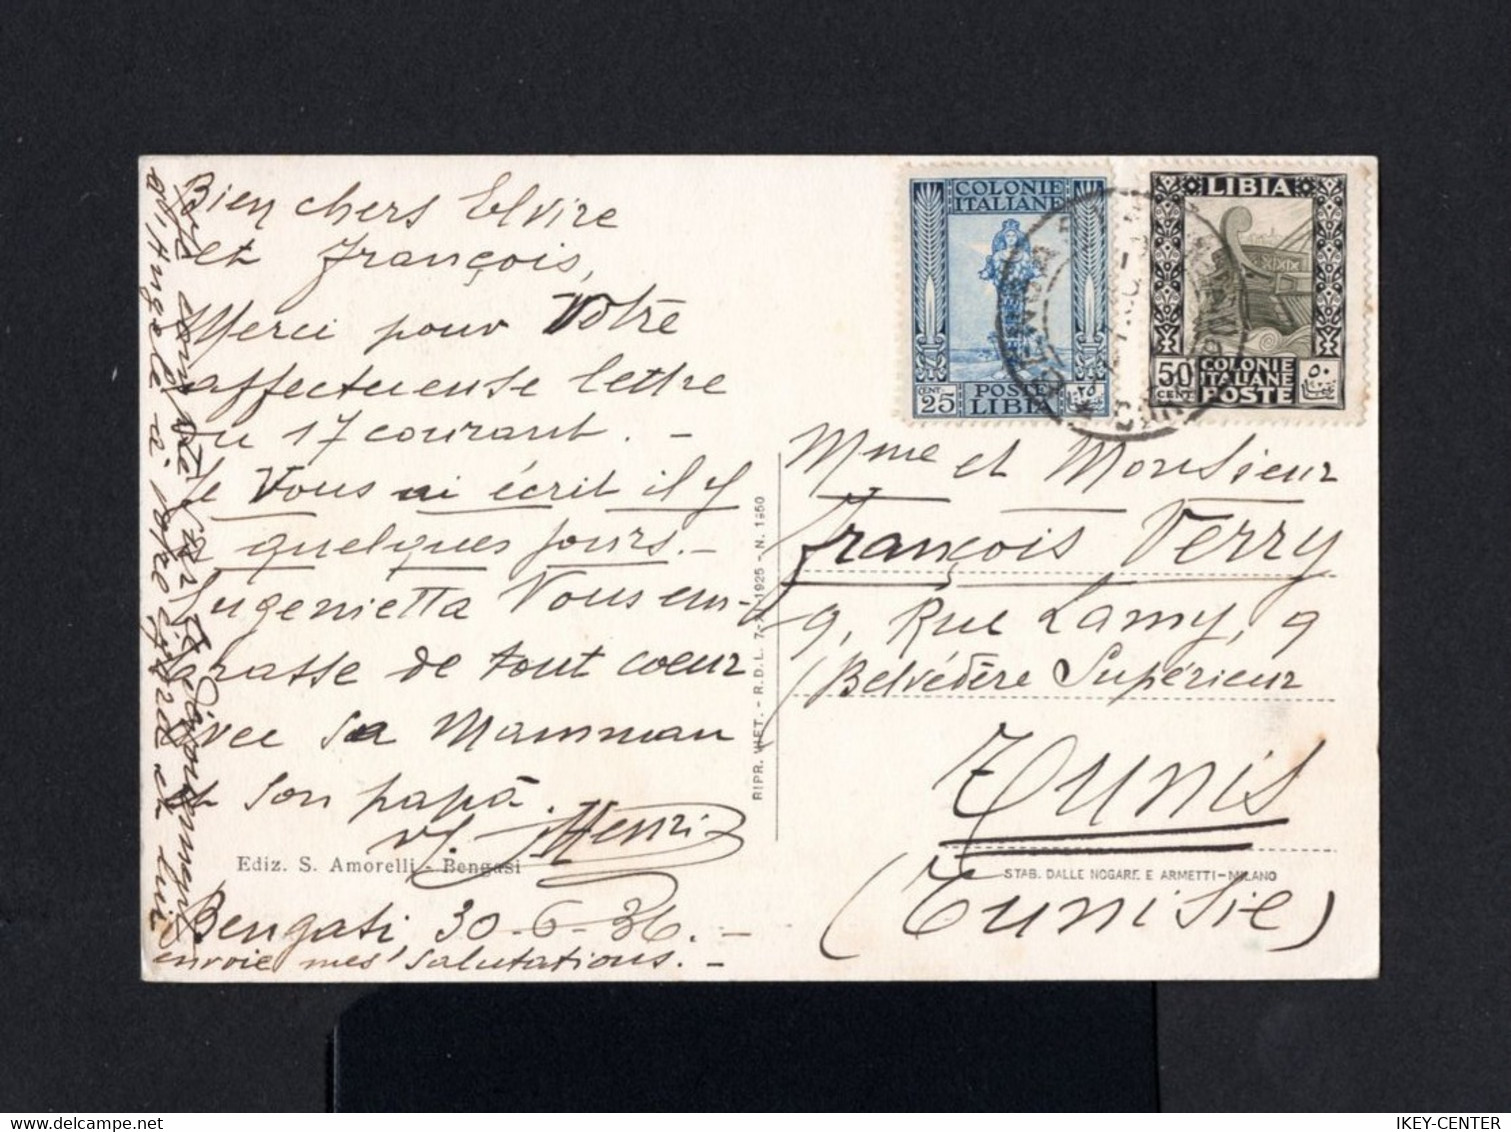 Bien chers Elvire
et François,
Merci pour Votre
affectueuse lettre
du 17 courant. -
Je Vous ai écrit il y
a quelques jours. -
Eugenietta Vous em-
brasse de tout coeur
avec sa Mamman
et son papà.
Henri
Ediz. S. Amorelli - Bengasi
Bengasi 30-6-36. -
envoie mes salutations. -
RIPR. VIET. - R.D.L. 7- -1925 - N. 1950
COLONIE
ITALIANE
CENT.
25
POSTE
LIBIA
٢٥
LIBIA
50
CENT.
COLONIE
ITALIANE
POSTE
٥٠
Mme et Monsieur
François Verry
9, Rue Lamy, 9
Belvédère Supérieur
Tunis
(Tunisie)
STAB. DALLE NOGARE E ARMETTI-MILANO
IKEY-CENTER